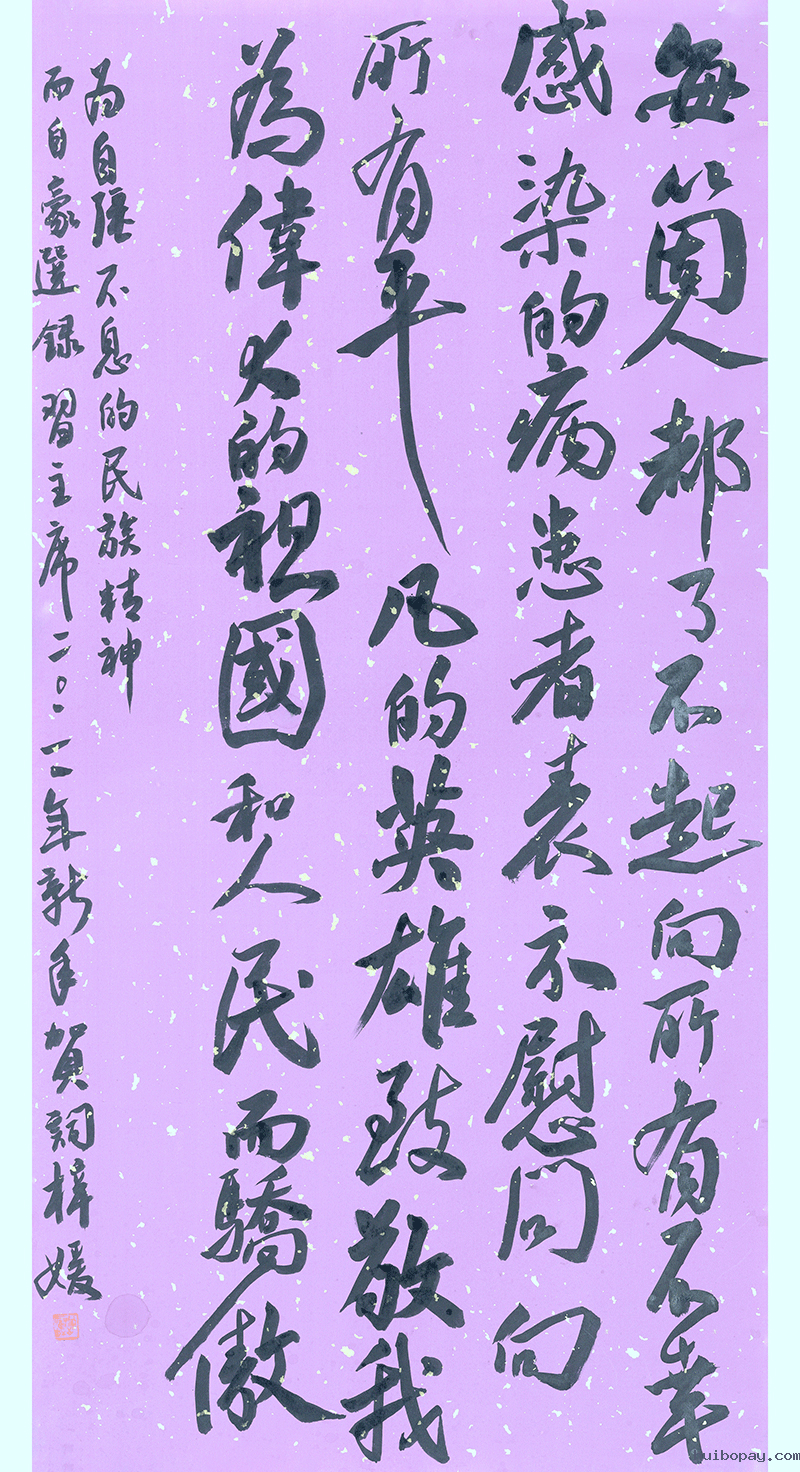 每箇人都了不起向所有不幸
感染的病患者表示慰問向
所有平凡的英雄致敬我
為偉大的祖國和人民而驕傲
為自强不息的民族精神
而自豪選録習主席二〇二一年新年賀詞梓媛
kuibopay.com